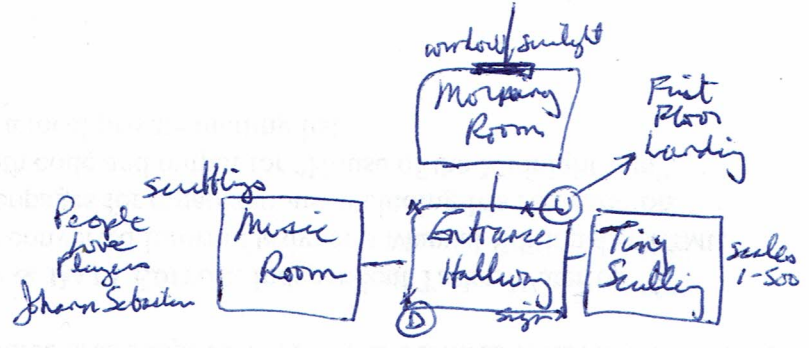 window sunlight
Morning
Room
First
Floor
Landing
U
scuttlings
People
Love
Players
Johann Sebastian
Music
Room
Entrance
Hallway
sign
D
Tiny
Scuttling
scales
1-500